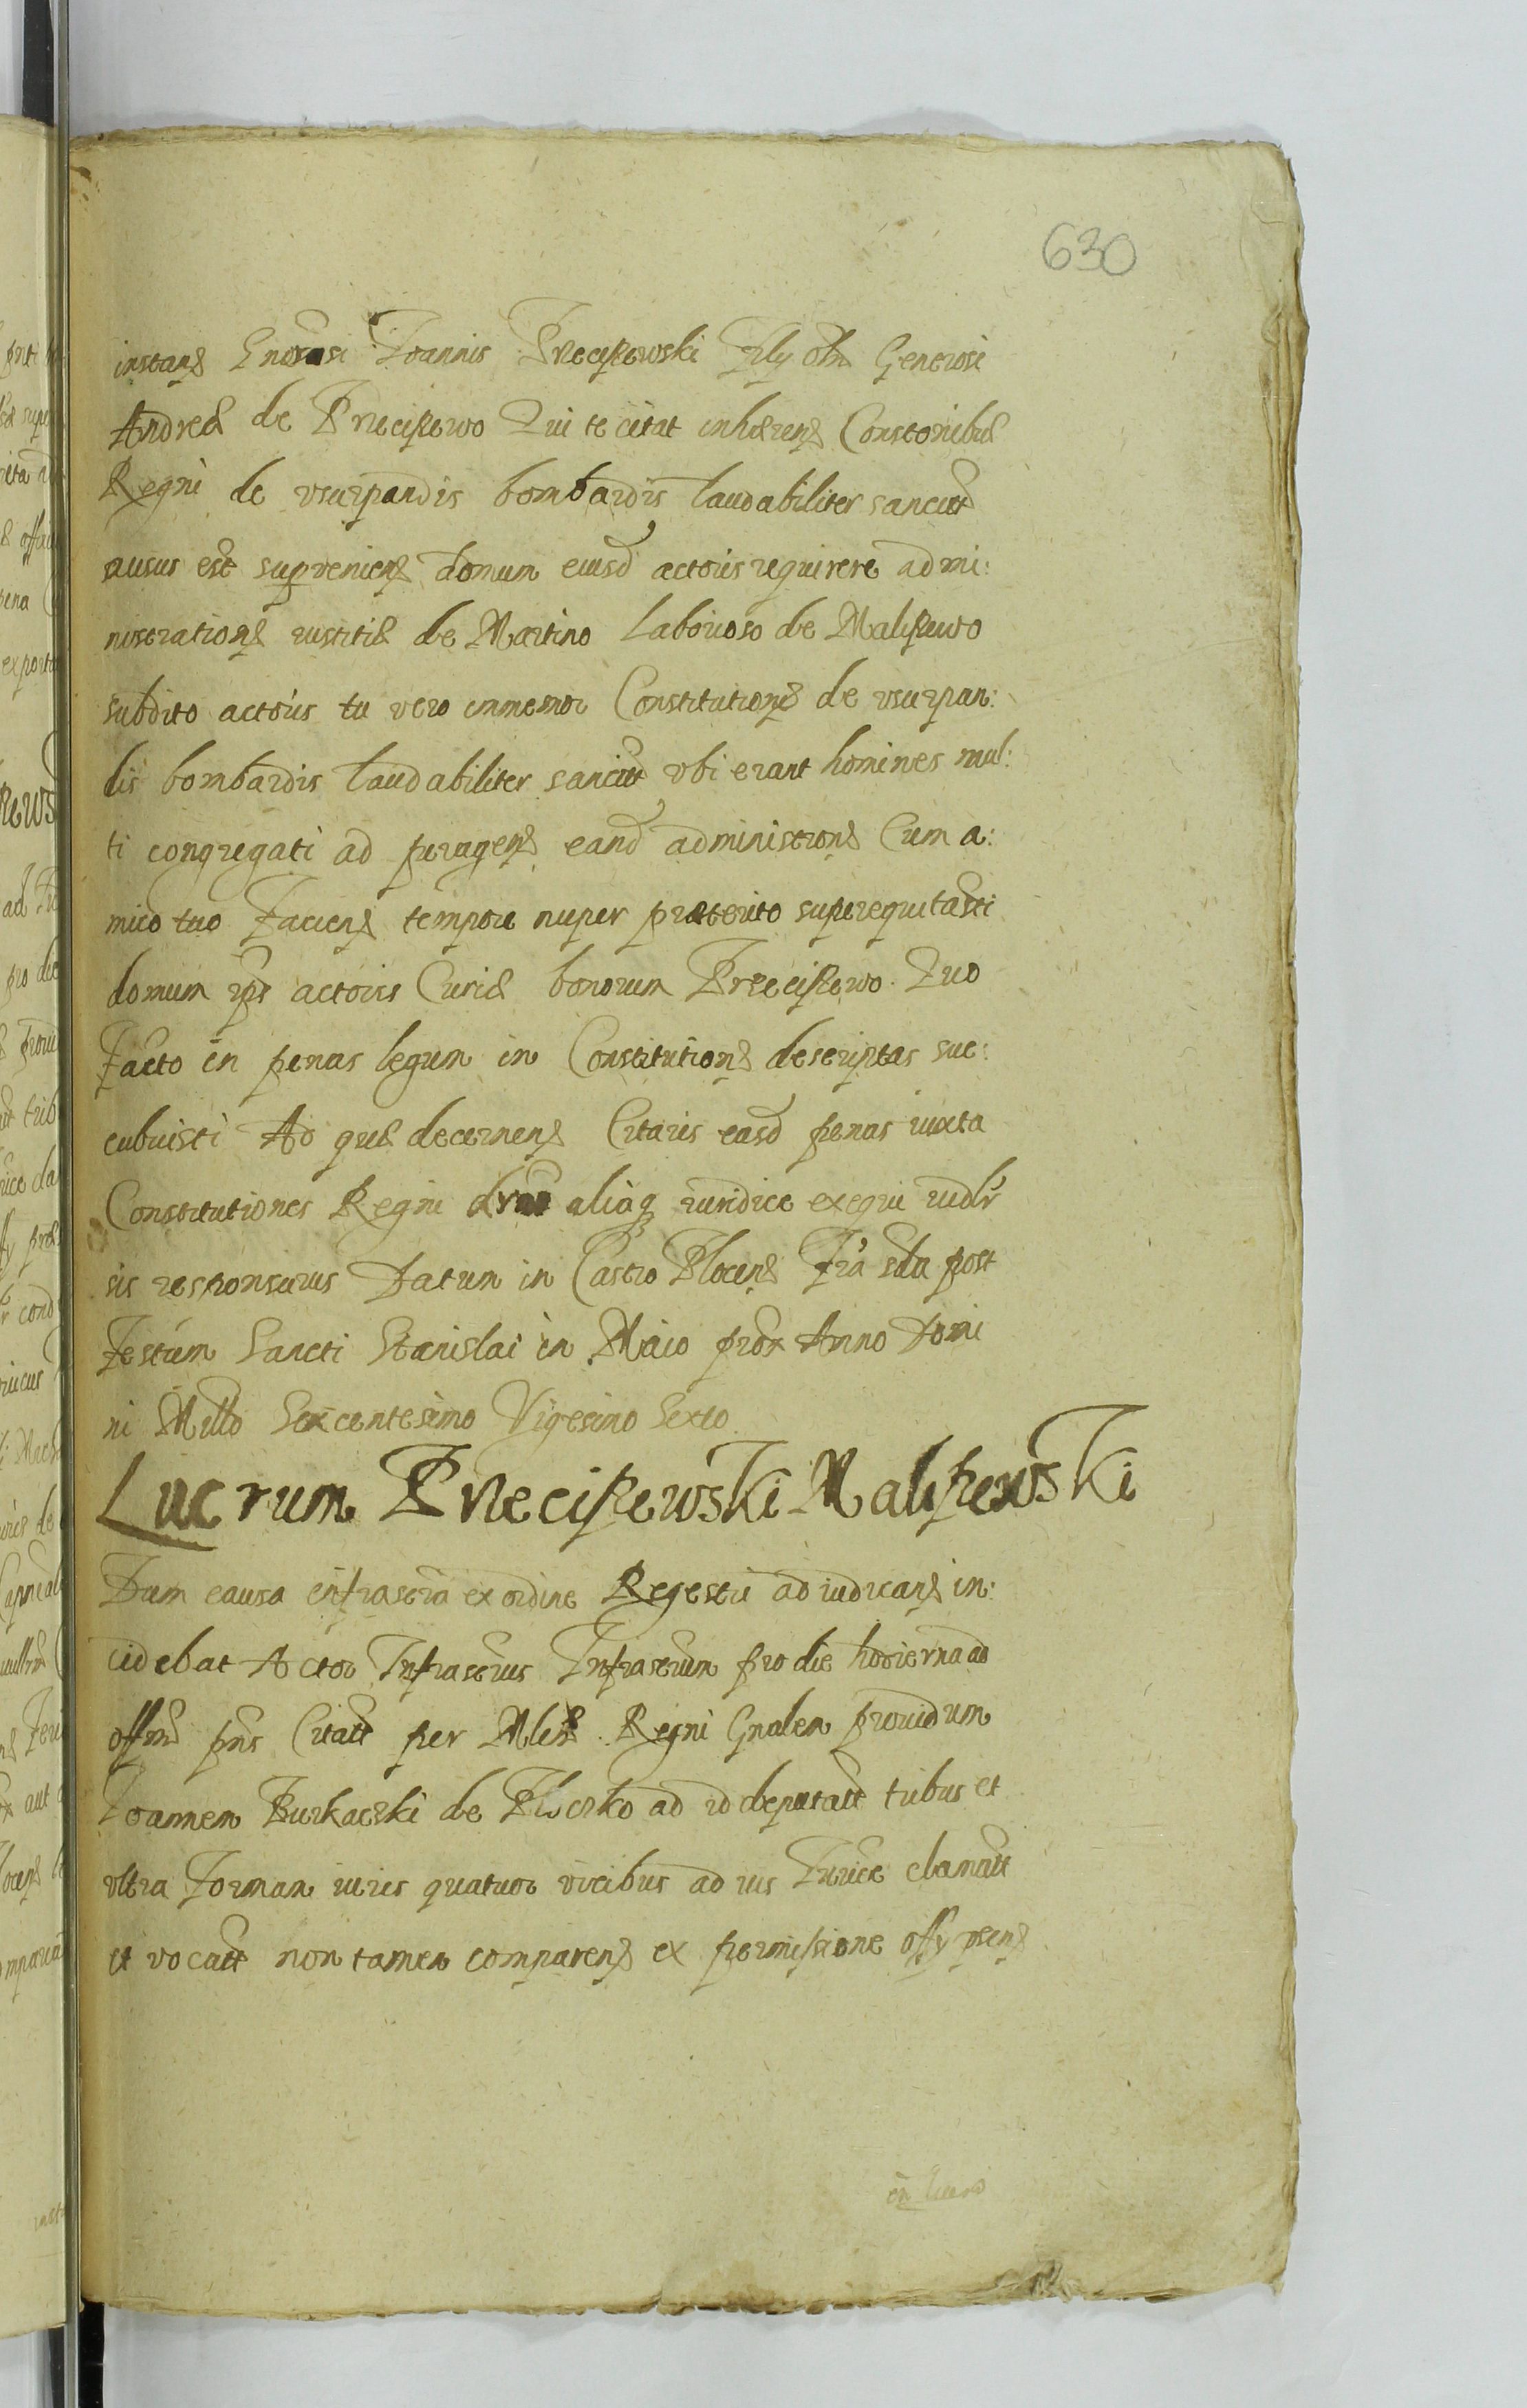 630
instans Gnorosi Joannis Przeciszewski Filÿ olim Generosi
Andreæ de Przeciszewo Qui te citat inhærens Constonibus
Regni de vsurpandis bombardis laudabiliter sancitt
ausus est supveniens domum eiusd actoris requirere admi:
nistrations iustitiæ de Martino Laborioso de Maliszewo
subdito actoris tu vero inmemor Constitutions de vsurpan:
dis bombardis laudabiliter sancitt vbi erant homines mul:
ti congregati ad peragens eand administrons Cum a:
mico tuo Faciens tempore nuper præterito superequitasti
domum ips actoris Curiæ bonorum Przeciszewo. Quo
Facto in penas legum in Constitutions descriptas suc:
cubuisti Ad quæ decernens Citaris easd penas iuxta
Constitutiones Regni aliaq iuridice exequi iudlr
sis responsurus Datum in Castro Plocens Fria 2da post
Festum Sancti Stanislai in Maio prox Anno Domi
ni Millo Sexcentesimo Vigesimo Sexto
Lucrum Przeciszewski Maliszewski
Dum causa infrascra ex ordine Regestri ad iudicans in:
cidebat Actor Infrascrus Infrascrum pro die hodierna ad
offm pns Citatt per Mins Regni Gnalem prouidum
Joannem Burkacki de Ploczko ad id deputatt tribus et
vltra Forman iuris quatuor vicibus ad ius Iurice clamatt
et vocatt non tamen comparens ex permissione offÿ psens